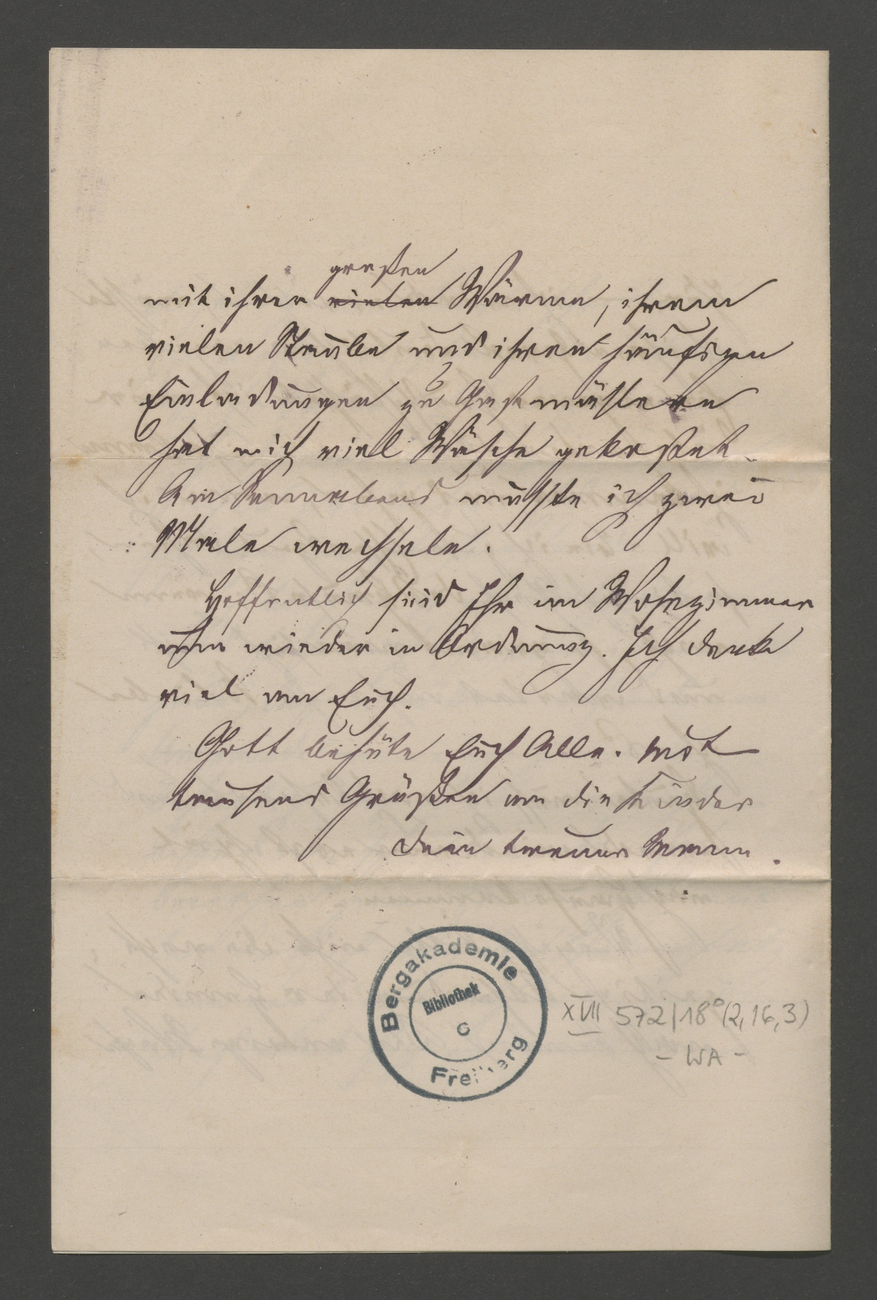 großen
mit ihrer vielen Wärme, ihrem
vielen Staube und ihren häufigen
Einladungen zu Gastmählern
hat mich viel Wäsche gekostet.
Am Sonnabend mußte ich zwei
Male wechseln.
Hoffentlich seid Ihr im Wohnzimmer
nun wieder in Ordnung. Ich denke
viel an Euch.
Gott behüte Euch Alle. Mit
tausend Grüßen an die Kinder
Dein treuer Mann.
Bergakademie
Bibliothek
C
Freiberg
XVII 572/18°(2,16,3)
- WA -